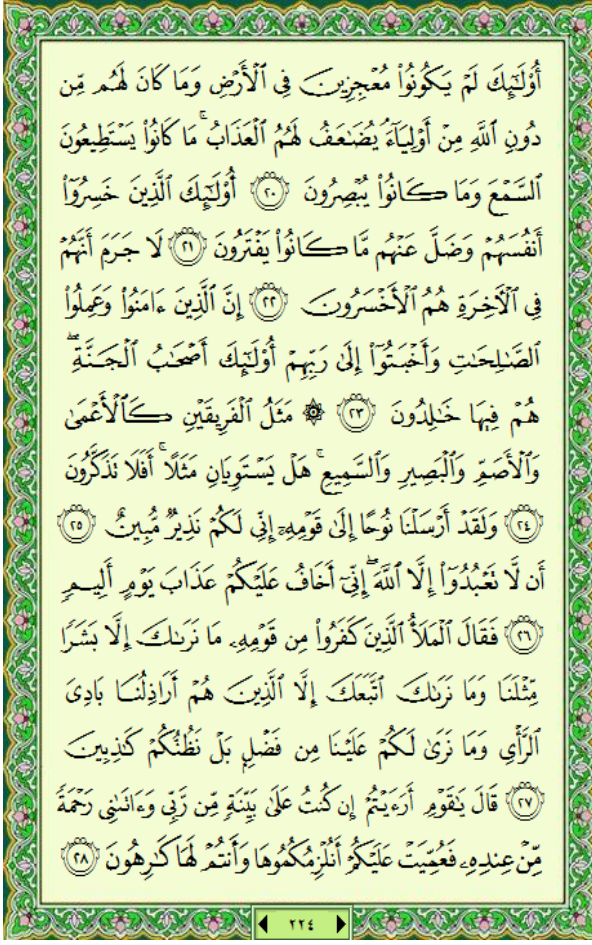 أُو۟لَٰٓئِكَ لَمْ يَكُونُوا۟ مُعْجِزِينَ فِى ٱلْأَرْضِ وَمَا كَانَ لَهُم مِّن
دُونِ ٱللَّهِ مِنْ أَوْلِيَآءَ ۘ يُضَٰعَفُ لَهُمُ ٱلْعَذَابُ ۚ مَا كَانُوا۟ يَسْتَطِيعُونَ
ٱلسَّمْعَ وَمَا كَانُوا۟ يُبْصِرُونَ ﴿٢٠﴾ أُو۟لَٰٓئِكَ ٱلَّذِينَ خَسِرُوٓا۟
أَنفُسَهُمْ وَضَلَّ عَنْهُم مَّا كَانُوا۟ يَفْتَرُونَ ﴿٢١﴾ لَا جَرَمَ أَنَّهُمْ
فِى ٱلْأَخِرَةِ هُمُ ٱلْأَخْسَرُونَ ﴿٢٢﴾ إِنَّ ٱلَّذِينَ ءَامَنُوا۟ وَعَمِلُوا۟
ٱلصَّٰلِحَٰتِ وَأَخْبَتُوٓا۟ إِلَىٰ رَبِّهِمْ أُو۟لَٰٓئِكَ أَصْحَٰبُ ٱلْجَنَّةِ ۖ
هُمْ فِيهَا خَٰلِدُونَ ﴿٢٣﴾ ۞ مَثَلُ ٱلْفَرِيقَيْنِ كَٱلْأَعْمَىٰ
وَٱلْأَصَمِّ وَٱلْبَصِيرِ وَٱلسَّمِيعِ ۚ هَلْ يَسْتَوِيَانِ مَثَلًا ۚ أَفَلَا تَذَكَّرُونَ
﴿٢٤﴾ وَلَقَدْ أَرْسَلْنَا نُوحًا إِلَىٰ قَوْمِهِۦٓ إِنِّى لَكُمْ نَذِيرٌ مُّبِينٌ ﴿٢٥﴾
أَن لَّا تَعْبُدُوٓا۟ إِلَّا ٱللَّهَ ۖ إِنِّىٓ أَخَافُ عَلَيْكُمْ عَذَابَ يَوْمٍ أَلِيمٍ
﴿٢٦﴾ فَقَالَ ٱلْمَلَأُ ٱلَّذِينَ كَفَرُوا۟ مِن قَوْمِهِۦ مَا نَرَىٰكَ إِلَّا بَشَرًا
مِّثْلَنَا وَمَا نَرَىٰكَ ٱتَّبَعَكَ إِلَّا ٱلَّذِينَ هُمْ أَرَاذِلُنَا بَادِىَ
ٱلرَّأْىِ وَمَا نَرَىٰ لَكُمْ عَلَيْنَا مِن فَضْلٍۭ بَلْ نَظُنُّكُمْ كَٰذِبِينَ
﴿٢٧﴾ قَالَ يَٰقَوْمِ أَرَءَيْتُمْ إِن كُنتُ عَلَىٰ بَيِّنَةٍ مِّن رَّبِّى وَءَاتَىٰنِى رَحْمَةً
مِّنْ عِندِهِۦ فَعُمِّيَتْ عَلَيْكُمْ أَنُلْزِمُكُمُوهَا وَأَنتُمْ لَهَا كَٰرِهُونَ ﴿٢٨﴾
٢٢٤